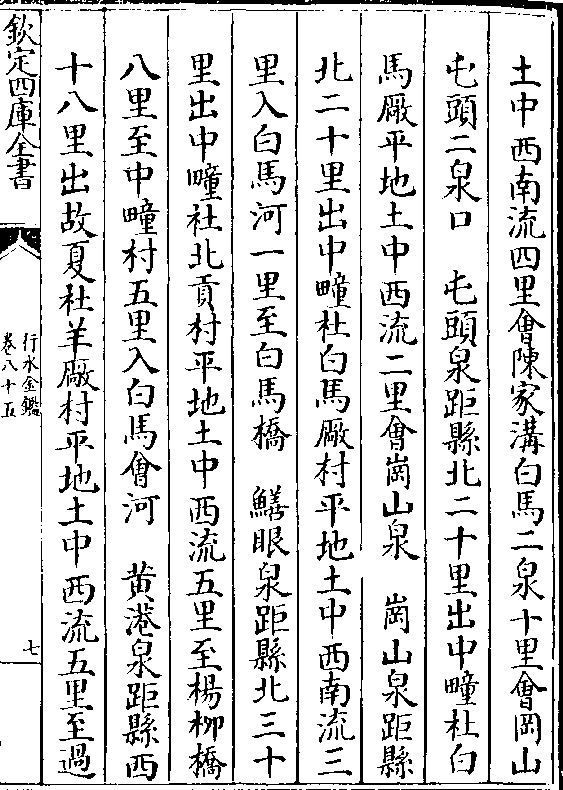 土中西南流四里會陳家溝白馬二泉十里會岡山
屯頭二泉口　屯頭泉距縣北二十里出中疃社白
馬厰平地土中西流二里會崗山泉　崗山泉距縣
北二十里出中疃社白馬厰村平地土中西南流三
里入白馬河一里至白馬橋　鱔眼泉距縣北三十
里出中疃社北貢村平地土中西流五里至楊栁橋
八里至中疃村五里入白馬會河　黄港泉距縣西
十八里出故夏社羊厰村平地土中西流五里至過
欽定四庫全書
行水金鑑
卷八十五
七